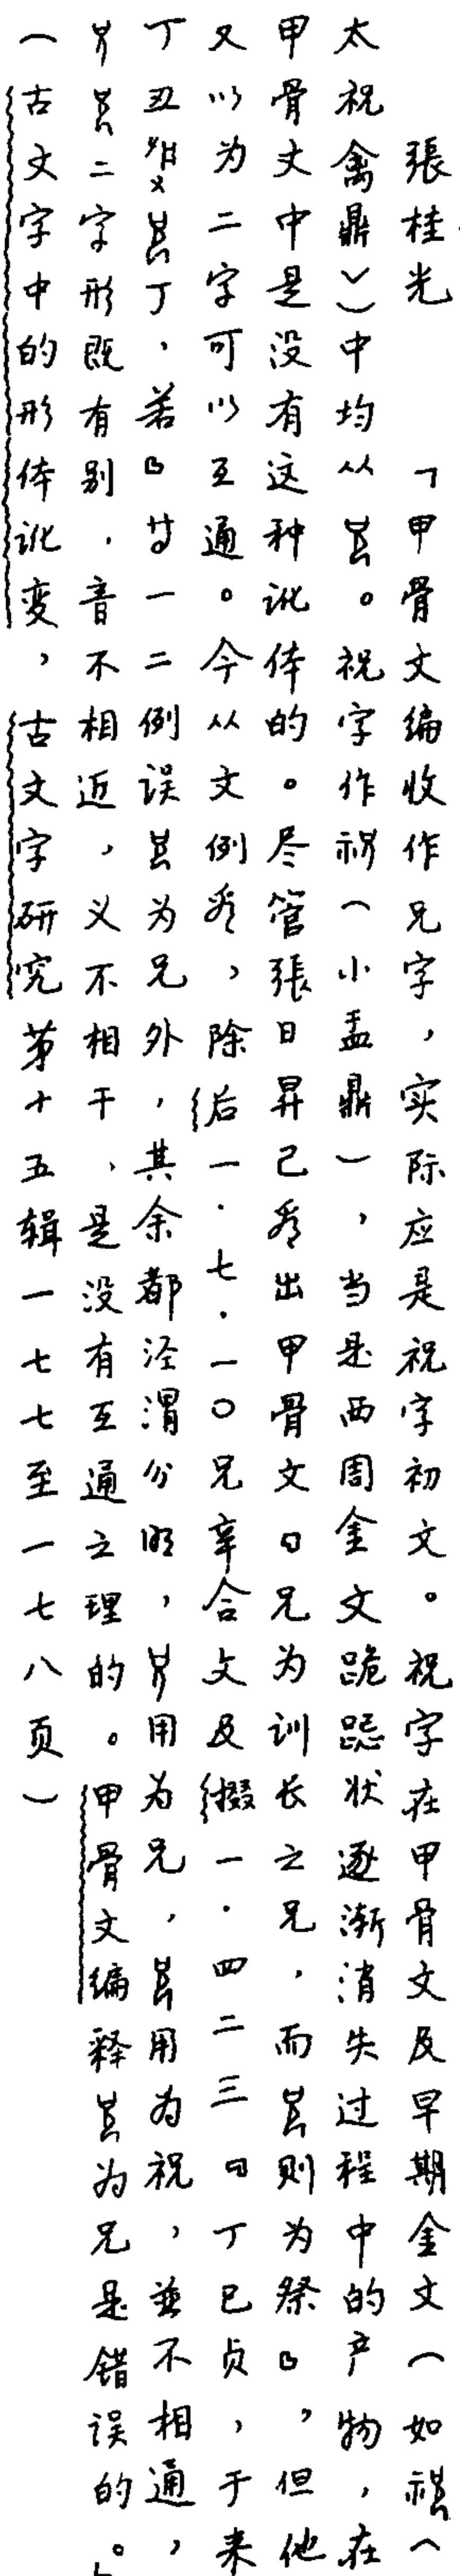 張桂光 「甲骨文編收作兄字，实际应是祝字初文。祝字在甲骨文及早期金文（如（
太祝禽鼎））中均从。祝字作（小盂鼎），当是西周金文跪跽状逐渐消失过程中的产物，在
甲骨文中是没有这种讹体的。尽管張日昇已看出甲骨文『兄为训长之兄，而则为祭』，但他
又以为二字可以互通。今从文例看，除后一·七·一〇兄辛合文及掇一·四二三『丁巳贞，于来
丁丑丁，若』等一二例误为兄外，其余都泾渭分明，用为兄，用为祝，並不相通，
二字形既有别，音不相近，义不相干，是没有互通之理的。甲骨文編释为兄是错误的。」
（古文字中的形体讹变，古文字研究第十五辑一七七至一七八页）